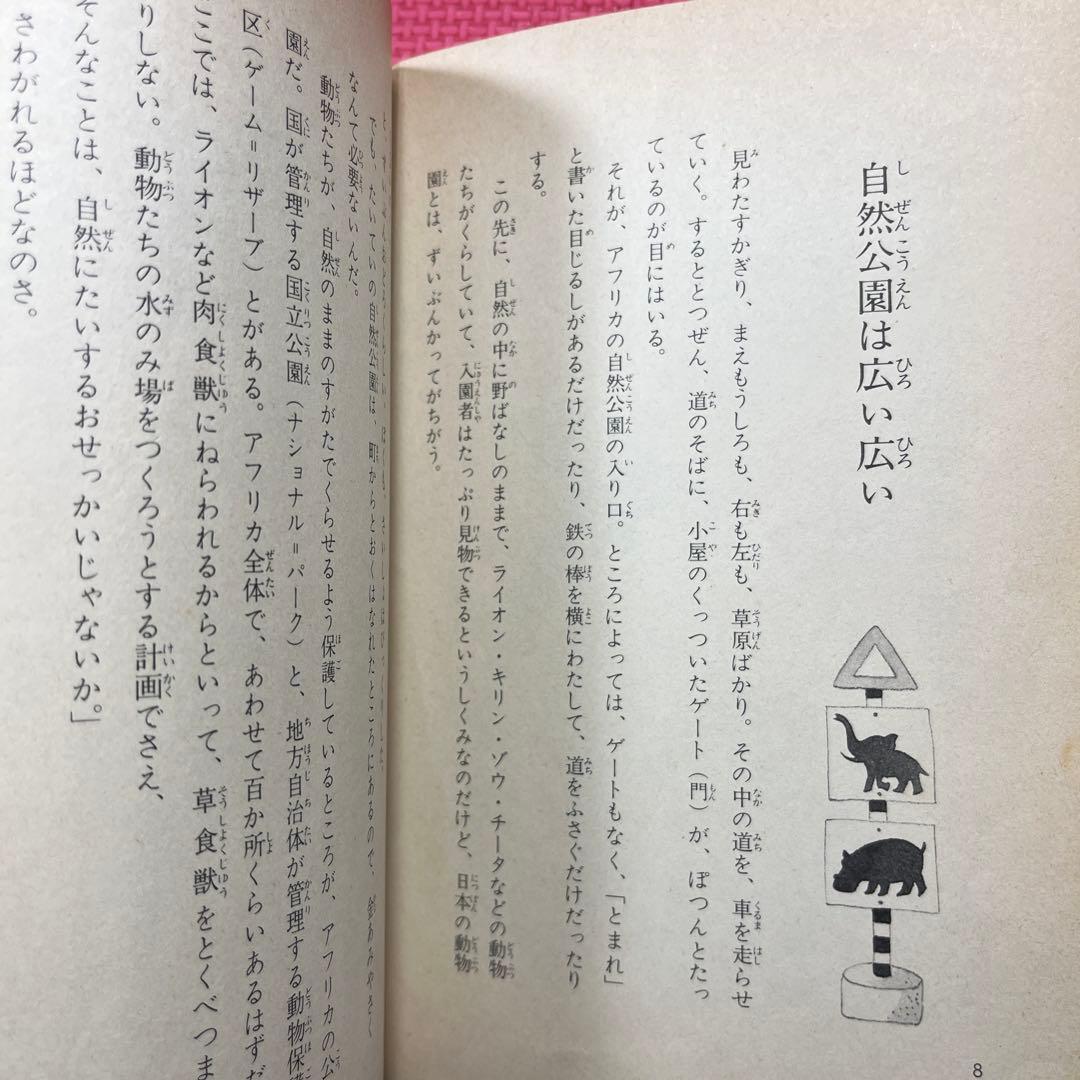 自然公園は広い広い
見わたすかぎり、まえもうしろも、右も左も、草原ばかり。その中の道を、車を走らせ
ていく。するととつぜん、道のそばに、小屋のくっついたゲート（門）が、ぽつんとたっ
ているのが目にはいる。
それが、アフリカの自然公園の入り口。ところによっては、ゲートもなく、「とまれ」
と書いた目じるしがあるだけだったり、鉄の棒を横にわたして、道をふさぐだけだったり
する。
この先に、自然の中に野ばなしのままで、ライオン・キリン・ゾウ・チータなどの動物
たちがくらしていて、入園者はたっぷり見物できるというしくみなのだけど、日本の動物
園とは、ずいぶんかってがちがう。
8
でも、たいていの自然公園は、町からとおくはなれたところにあるので、金あみやさく
なんて必要ないんだ。
動物たちが、自然のままのすがたでくらせるよう保護しているところが、アフリカの公
園だ。国が管理する国立公園（ナショナル＝パーク）と、地方自治体が管理する動物保護
区（ゲーム＝リザーブ）とがある。アフリカ全体で、あわせて百か所くらいあるはずだ
ここでは、ライオンなど肉食獣にねらわれるからといって、草食獣をとくべつま
りしない。動物たちの水のみ場をつくろうとする計画でさえ、
そんなことは、自然にたいするおせっかいじゃないか。」
さわがれるほどなのさ。